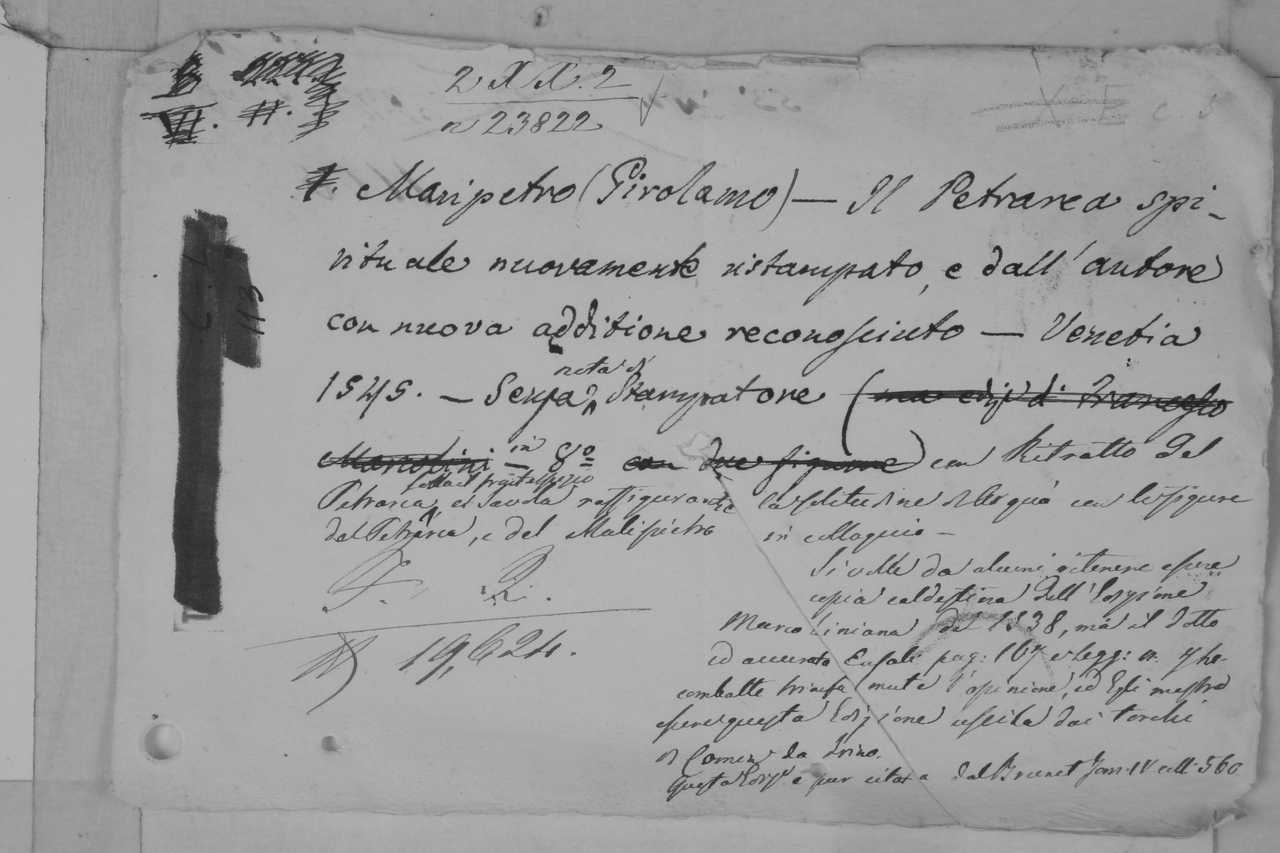 2 X X. 2
n 23822
C. L
113
Maripetro (Girolamo) — Il Petrarca spi-
rituale nuovamente ristampato, e dall'autore
con nuova additione reconosciuto — Venetia
1545. — Senza nota di Stampatore (ma ediz.e di Francesco
Marcolini — in 8.o con due figure) con Ritratto del
Petrarca sotto il frontespizio, ed tavola raffigurante la solitudine di Arquà con le figure
del Petrarca, e del Malipietro in colloquio —
Si volle da alcuni ritenere essere
copia clandestina dell'Edizione
Marcoliniana del 1538, ma il dotto
ed accurato pag: 167 e legg: n. 7
combatte l'opinione, ed Egli mostra
essere questa Edizione uscita dai torchi
di Comin da Trino.
Questa Ediz.e è pur citata dal Brunet Tom. IV coll. 560
F. 2.
N 19,624.